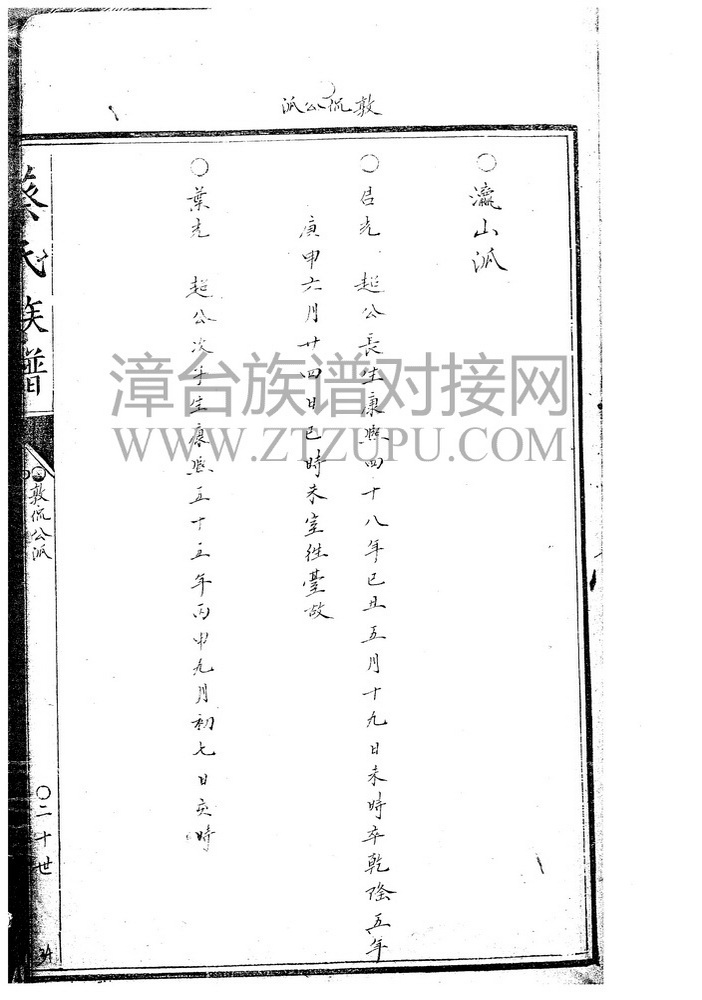 敦侃公派
○瀛山派
○呂光 超公長生康熙四十八年己丑五月十九日未時卒乾隆五年
庚申六月廿四日巳時未室往臺故
○葉光 超公次子生康熙五十五年丙申九月初七日亥時
蔡氏族譜
○敦侃公派
○二十世
漳台族谱对接网
WWW.ZTZUPU.COM